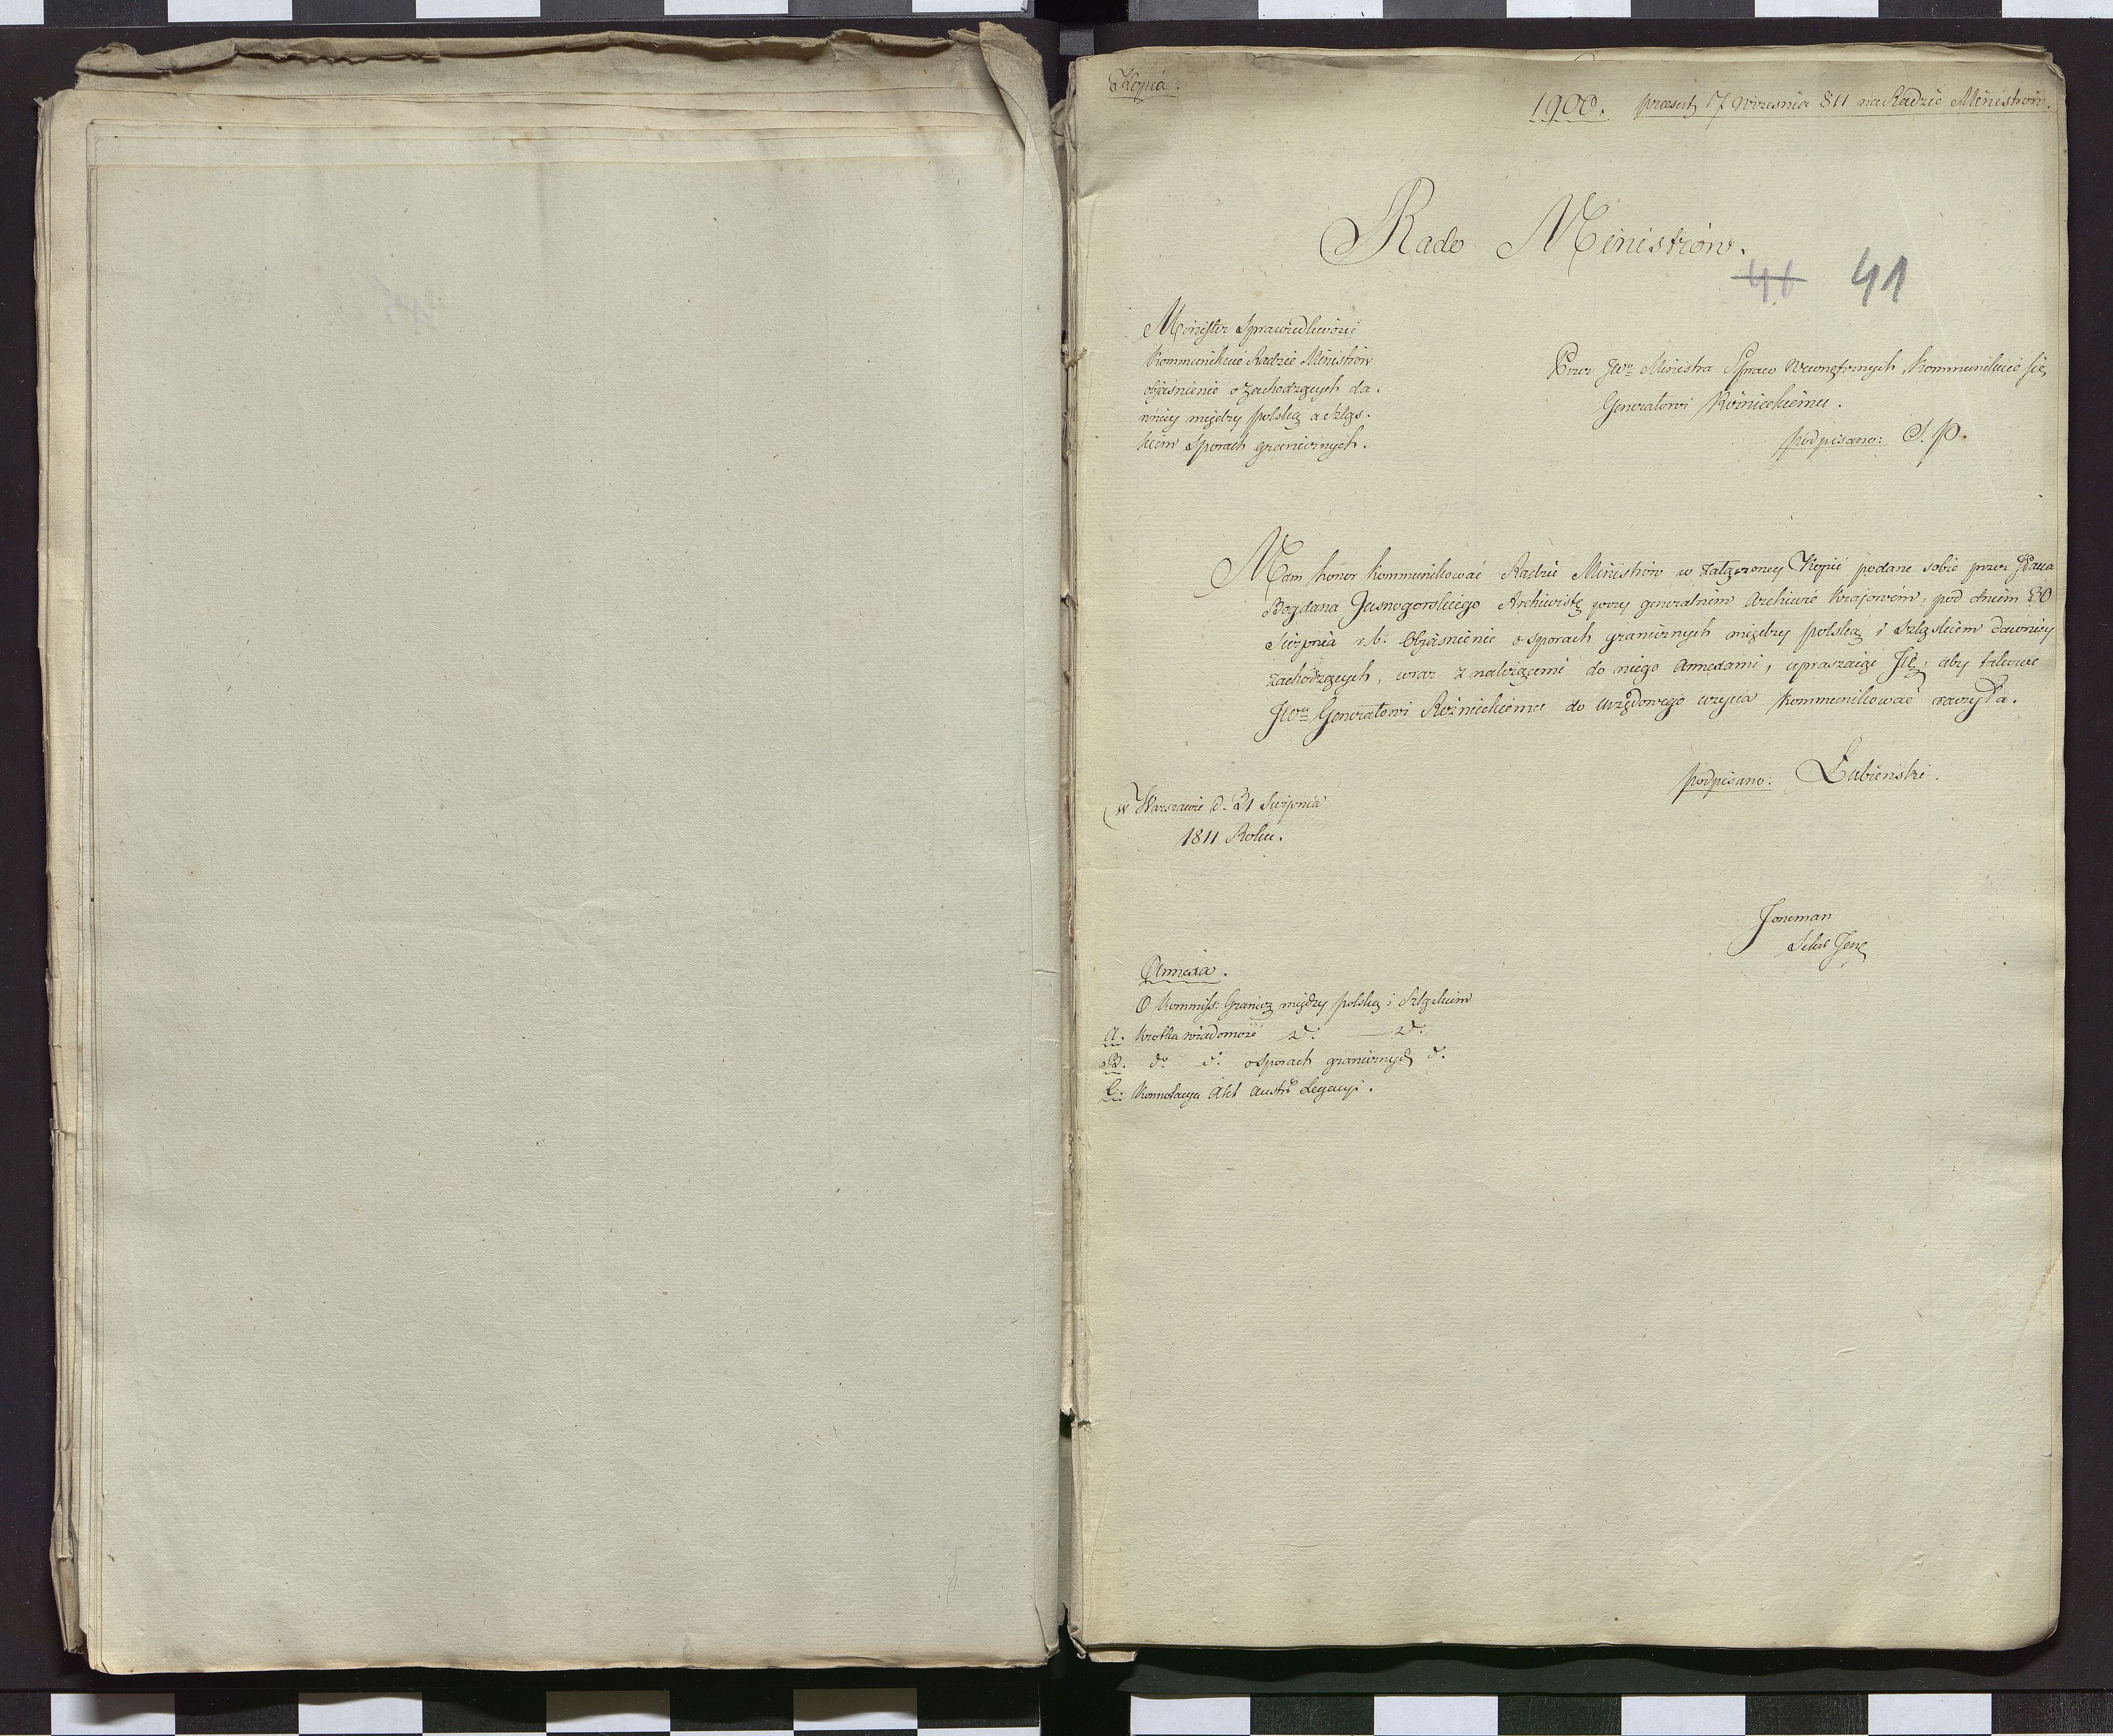 Kopia.
1900. praesent 17 Wrzesnia 811 na Radzie Ministrów.
Rado Ministrów.
41
Minister Sprawiedliwości
kommunikuie Radzie Ministrów
objaśnienie o zachodzących da.
wniey między Polską a szląs.
kiem sporach granicznych.
Przez JWo Ministra Spraw Wewnętrznych, kommunikuie się
Generałowi Rożnieckiemu.
podpisano: S. P.
Mam honor kommunikować Radzie Ministrów w załączoney Kopii podane sobie przez Pana
Bogdana Jasnogorskiego Archiwistę przy generalném Archiwie Kraiowém, pod dniem 30
Sierpnia r. b. Objaśnienie o sporach granicznych między Polską i Szląskiem dawniey
zachodzących, wraz z należącemi do niego Annexami, upraszaiąc Jey, aby takowe
JWu Generałowi Rożnieckiemu do urzędowego użycia kommunikować raczyła.
podpisano: Łubieński.
w Warszawie d. 31 Sierpnia
1811 Roku.
Joneman
Sekr Jene
Annexa.
O Kommiss: Granicz między Polską i Szląskiem
A. Krotka wiadomość d. — d.
B. do d. o sporach granicznych d.
C. Konnotacya Akt Austr: Legacyi.